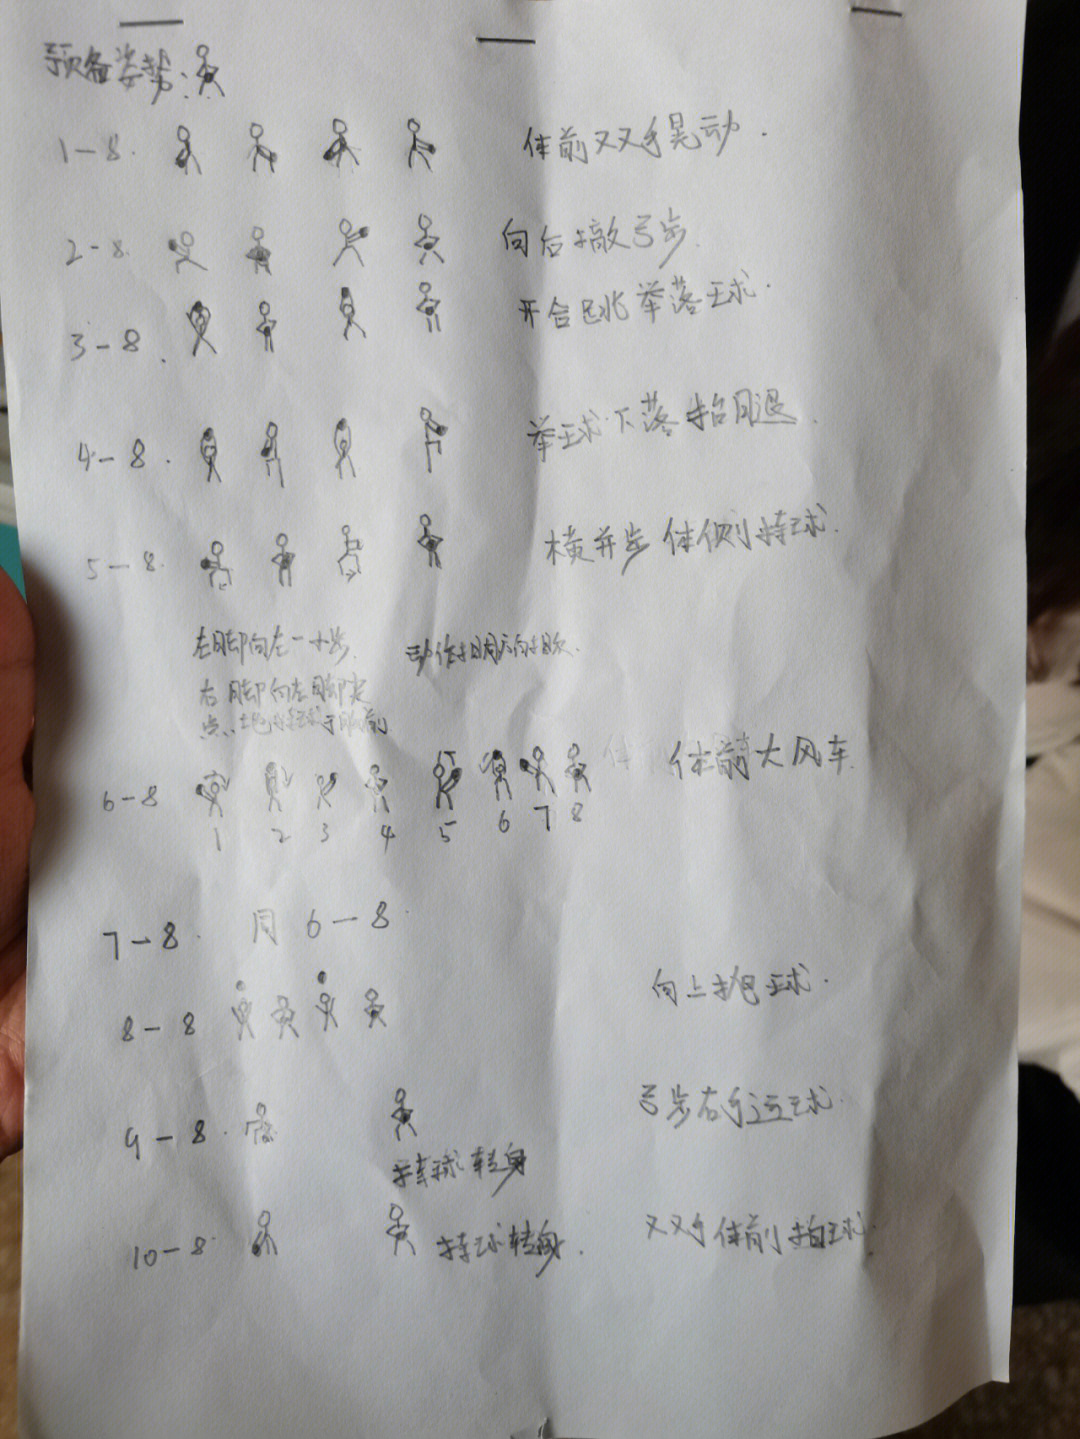 预备姿势:
1-8. 体前双手晃动.
2-8. 向后撤弓步.
3-8. 开合跳举落球.
4-8. 举球下落抬腿.
5-8. 横并步体侧持球.
左脚向左一步. 动作相同方向相反.
右脚向左脚
点地持球于胸前
6-8 体前大风车
1 2 3 4 5 6 7 8
7-8. 同6-8.
8-8 向上抛球.
9-8. 弓步右手运球.
持球转身
10-8. 持球转身. 双手体前拍球.